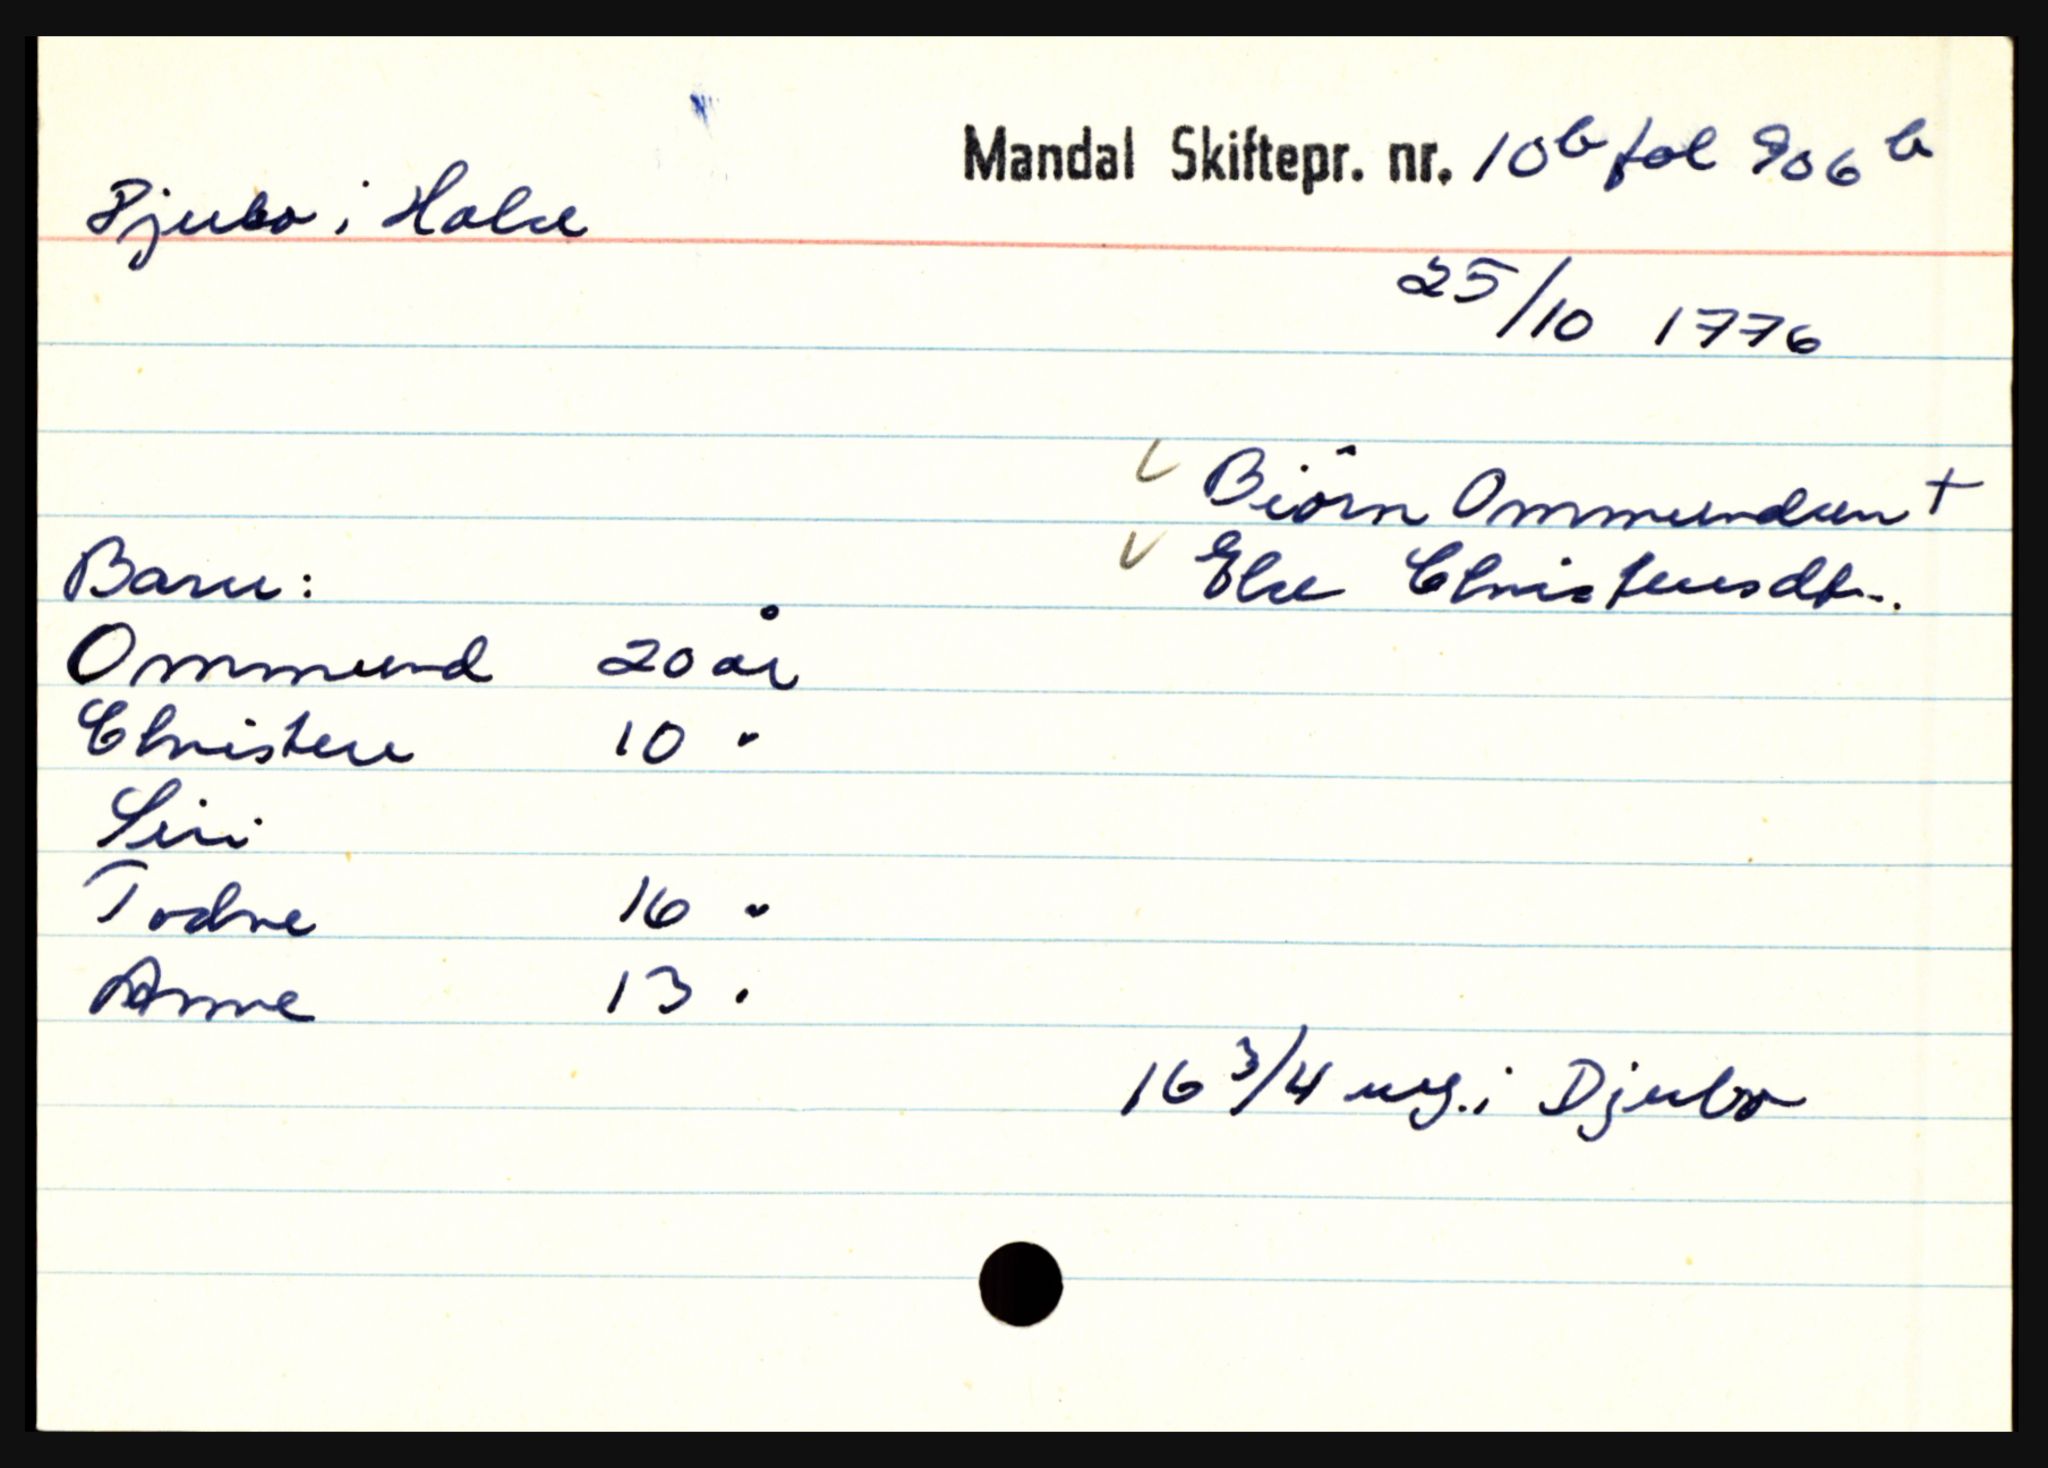 Mandal Skiftepr. nr. 10b fol 906b
Djubo i Halse
25/10 1776
Biörn Ommundsen +
Barn:
Else Christensdtr.
Ommund 20 år
Christen 10 "
Siri
Todne 16 "
Anne 13 "
16 3/4 mrg. i Djubo